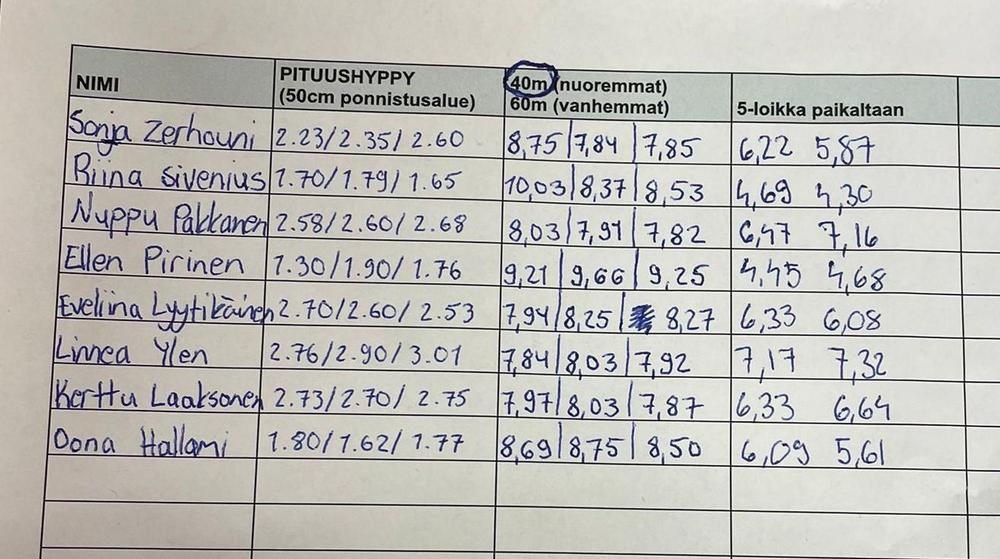 NIMI PITUUSHYPPY (50cm ponnistusalue) 40m (nuoremmat) 60m (vanhemmat) 5-loikka paikaltaan
Sonja Zerhouni 2.23/2.35/2.60 8,75|7,84|7,85 6,22 5,87
Riina Sivenius 1.70/1.79/1.65 10,03|8,37|8,53 4,69 4,30
Nuppu Pakkanen 2.58/2.60/2.68 8,03|7,91|7,82 6,47 7,16
Ellen Pirinen 1.30/1.90/1.76 9,21|9,66|9,25 4,45 4,68
Eveliina Lyytikäinen 2.70/2.60/2.53 7,94|8,25|8,27 6,33 6,08
Linnea Ylen 2.76/2.90/3.01 7,84|8,03|7,92 7,17 7,32
Kerttu Laaksonen 2.73/2.70/2.75 7,97|8,03|7,87 6,33 6,64
Oona Hallami 1.80/1.62/1.77 8,69|8,75|8,50 6,09 5,61